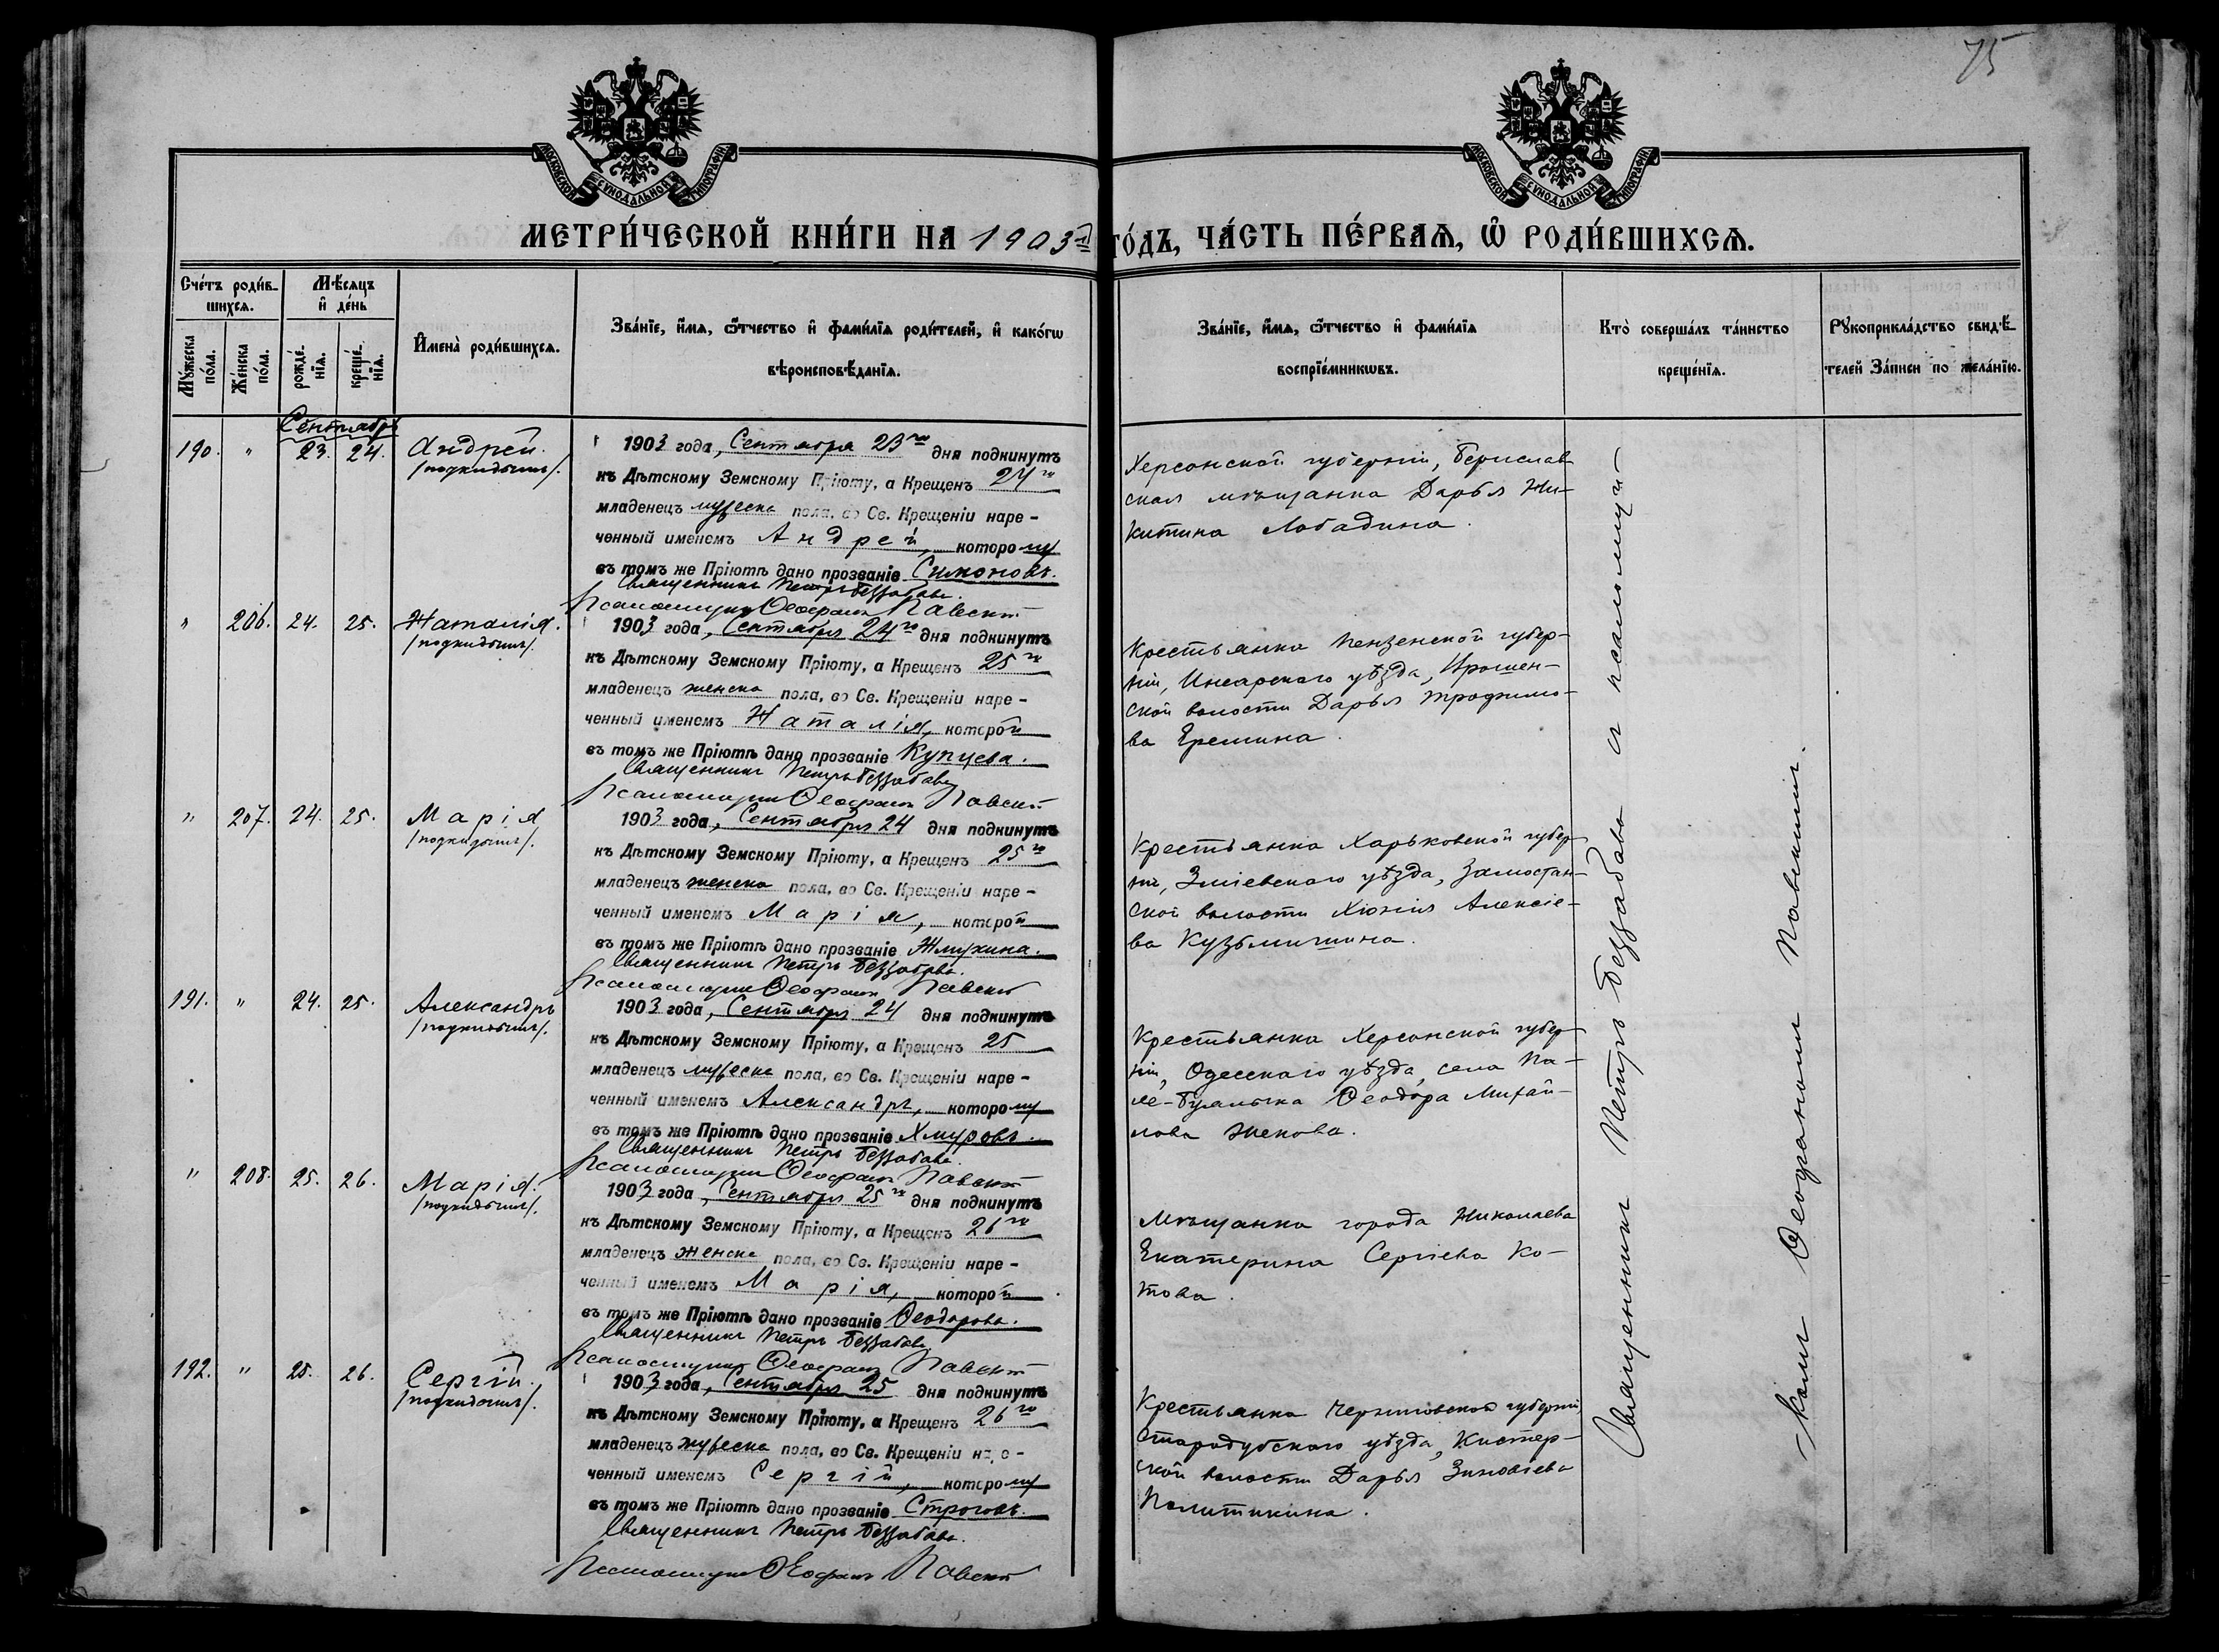 75
МОСКОВСКОЙ СУНОДАЛЬНОЙ ТИПОГРАФІИ
МОСКОВСКОЙ СУНОДАЛЬНОЙ ТИПОГРАФІИ
МЕТРИ́ЧЕСКОЙ КНИ́ГИ НА 1903й го́дъ, ЧА́СТЬ ПЕ́РВАЯ, Ѡ҆ РОДИ́ВШИХСЯ.
Сче́тъ роди́в-
шихся.
Мѣ́сяцъ
и҆ де́нь
Мꙋ́жеска по́ла.
Же́нска по́ла.
рожде́-
нїя.
креще́-
нїя.
И҆мена̀ роди́вшихся.
Зва́нїе, и҆́мя, ѻ҆́тчество и҆ фами́лїя роди́телей, и҆ како́гѡ
вѣроисповѣ́данїя.
Зва́нїе, и҆́мя, ѻ҆́тчество и҆ фами́лїя
воспрїе́мникѡвъ.
Кто̀ соверша́лъ та́инство
креще́нїя.
Рꙋкоприкла́дство свидѣ́-
телей За́писи по жела́нїю.
Сентябрь
190. " 23. 24. Андрей.
/подкидышъ/.
1903 года, Сентября 23го дня подкинутъ
къ Дѣтскому Земскому Пріюту, а Крещенъ 24го
младенецъ мужеска пола, во Св. Крещеніи наре-
ченный именемъ Андрей, которому
въ томъ же Пріютѣ дано прозваніе Симоновъ.
Священникъ Петръ Беззабава.
Псаломщикъ Ѳеофанъ Павскій
Херсонской губерніи, Берислав
ская мѣщанка Дарья Ни-
китина Лободина.
" 206. 24. 25. Наталія.
/подкидышъ/.
1903 года, Сентября 24го дня подкинутъ
къ Дѣтскому Земскому Пріюту, а Крещенъ 25го
младенецъ женска пола, во Св. Крещеніи наре-
ченный именемъ Наталія, которой
въ томъ же Пріютѣ дано прозваніе Купцева.
Священникъ Петръ Беззабава
Псаломщикъ Ѳеофанъ Павскій
Крестьянка Пензенской губер-
ніи, Инсарскаго уѣзда,
ской волости Дарья Трофимо-
ва Еремина.
" 207. 24. 25. Марія
/подкидышъ/.
1903 года, Сентября 24 дня подкинутъ
къ Дѣтскому Земскому Пріюту, а Крещенъ 25го
младенецъ женска пола, во Св. Крещеніи наре-
ченный именемъ Марія, которой
въ томъ же Пріютѣ дано прозваніе Жмухина.
Священникъ Петръ Беззабава.
Псаломщикъ Ѳеофанъ Павскій
Крестьянка Харьковской губер
ніи, Зміевскаго уѣзда, Замостян-
ской волости Хіонія Алексіе-
ва Кузьмишина.
191. " 24. 25. Александръ
/подкидышъ/.
1903 года, Сентября 24 дня подкинутъ
къ Дѣтскому Земскому Пріюту, а Крещенъ 25
младенецъ мужеска пола, во Св. Крещеніи наре-
ченный именемъ Александръ, которому
въ томъ же Пріютѣ дано прозваніе Хмуровъ.
Священникъ Петръ Беззабава.
Псаломщикъ Ѳеофанъ Павскій
Крестьянка Херсонской губер
ніи, Одесскаго уѣзда, села
Ѳеодора Михай-
лова Жекова.
" 208. 25. 26. Марія.
/подкидышъ/.
1903 года, Сентября 25го дня подкинутъ
къ Дѣтскому Земскому Пріюту, а Крещенъ 26го
младенецъ женска пола, во Св. Крещеніи наре-
ченный именемъ Марія, которой
въ томъ же Пріютѣ дано прозваніе Ѳеодорова.
Священникъ Петръ Беззабава
Псаломщикъ Ѳеофанъ Павскій
Мѣщанка города Николаева
Екатерина Сергіева Ко-
това.
192. " 25. 26. Сергій.
/подкидышъ/.
1903 года, Сентября 25 дня подкинутъ
къ Дѣтскому Земскому Пріюту, а Крещенъ 26го
младенецъ мужеска пола, во Св. Крещеніи наре-
ченный именемъ Сергій, которому
въ томъ же Пріютѣ дано прозваніе Строговъ.
Священникъ Петръ Беззабава.
Псаломщикъ Ѳеофанъ Павскій
Крестьянка Черниговской губерніи,
Стародубскаго уѣзда, Кистер-
ской волости Дарья Зиновіева
Политикина.
Священникъ Петръ Беззабава съ псаломщи-
комъ Ѳеофаномъ Павскимъ.